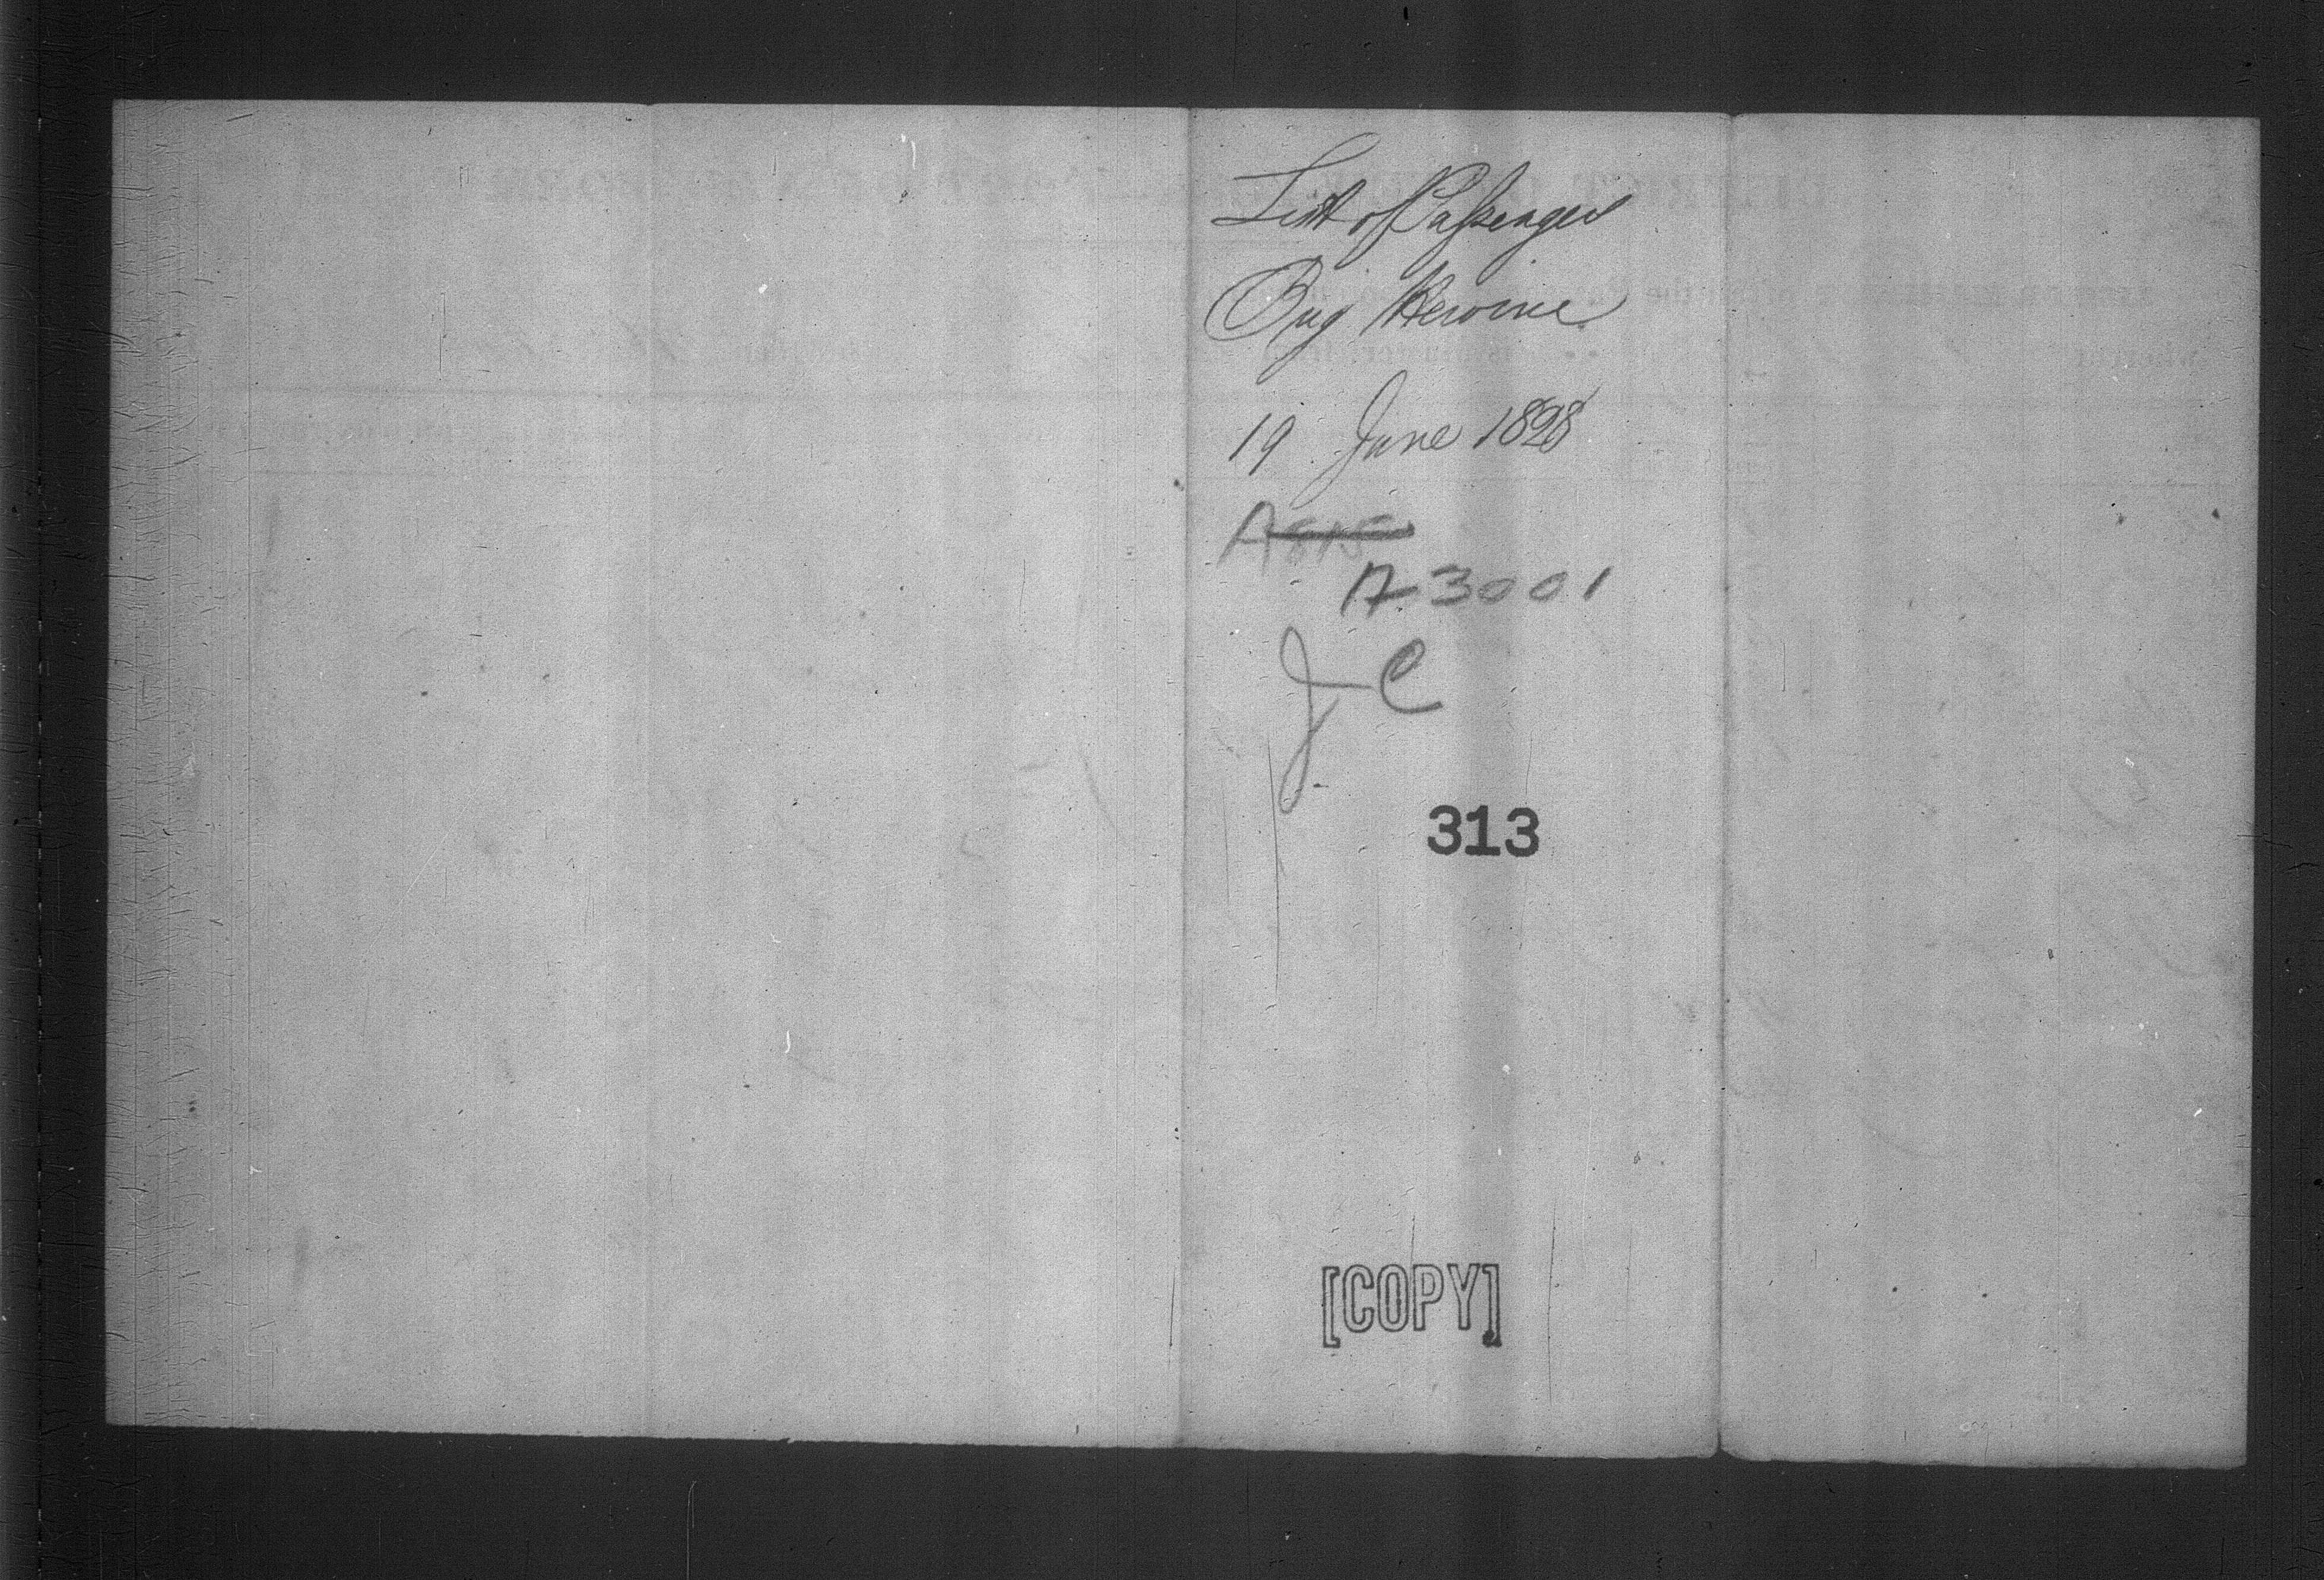 List of Passengers
Brig Heroine
19 June 1828
A 3001
J C
313
[COPY]